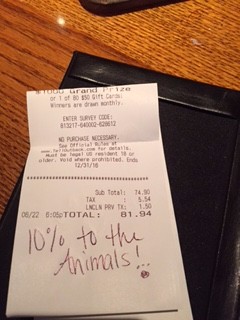 $1000 Grand Prize
or 1 of 80 $50 Gift Cards!
Winners are drawn monthly.
ENTER SURVEY CODE:
NO PURCHASE NECESSARY.
See Official Rules at
for details.
Must be legal US resident 18 or
older. Void where prohibited. Ends
12/31/16
Sub Total: 74.90
TAX : 5.54
LNCLN PRV TX: 1.50
06/22 6:05pTOTAL: 81.94
10% to the
Animals!...